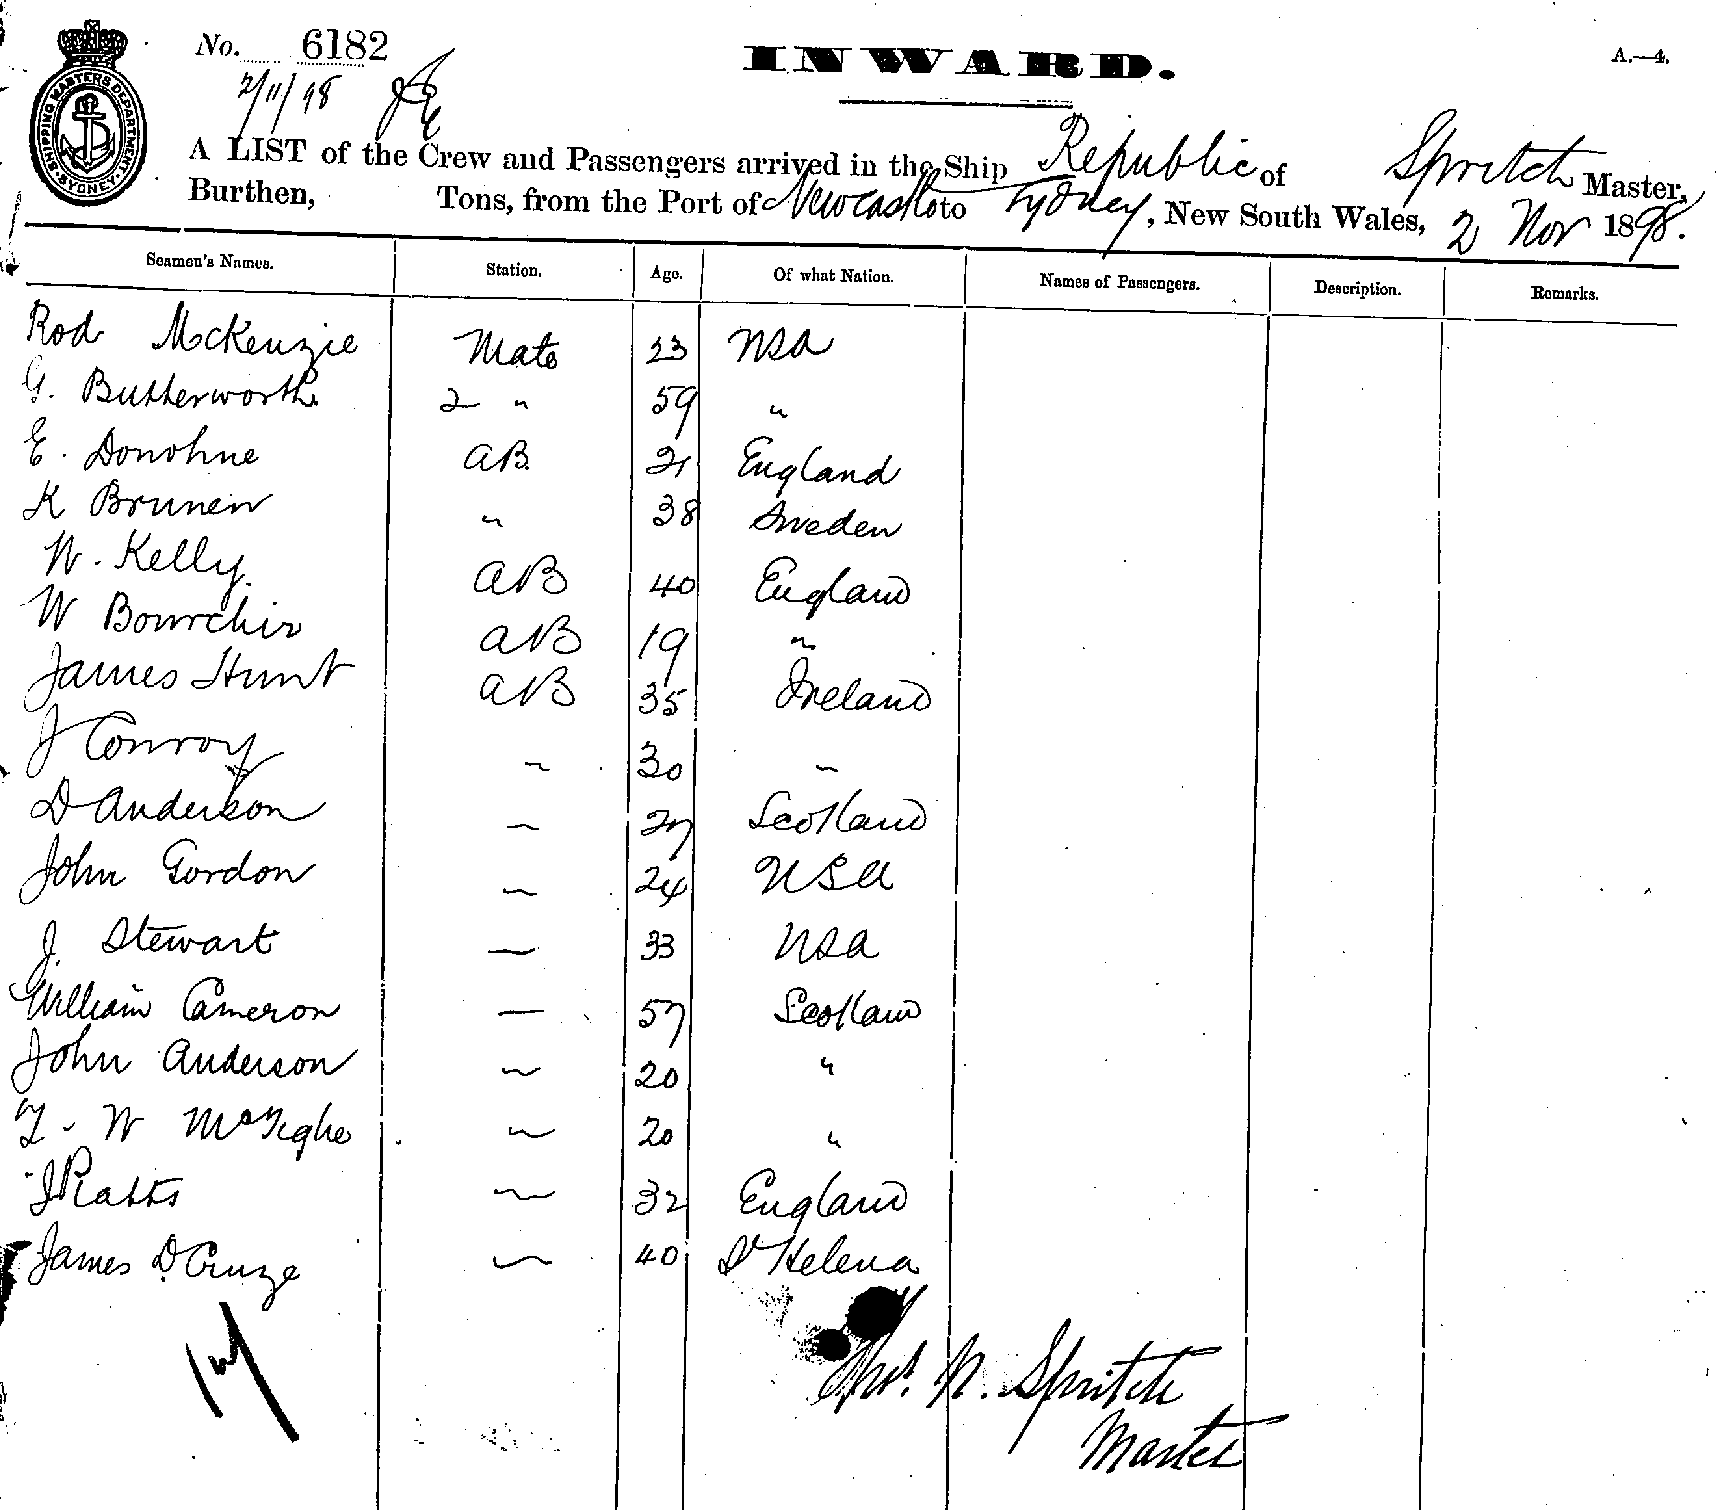 No. 6182
INWARD.
A.—4.
2/11/98
SHIPPING MASTERS DEPARTMENT SYDNEY
A LIST of the Crew and Passengers arrived in the Ship Republic of Spritch Master,
Burthen, Tons, from the Port of Newcastle to Sydney, New South Wales, 2 Nov 1898.
Seamen's Names. Station. Age. Of what Nation. Names of Passengers. Description. Remarks.
Rod McKenzie Mate 23 USA
G. Butterworth 2 " 59 "
E. Donohue AB 21 England
K Brunen " 38 Sweden
W. Kelly. AB 40 England
W Bourchir AB 19 "
James Hunt AB 35 Ireland
J Conroy " 30 "
D Anderson " 27 Scotland
John Gordon " 24 USA
J. Stewart " 33 USA
William Cameron " 57 Scotland
John Anderson " 20 "
W McTighe " 20 "
" 32 England
James D. Cruze " 40 St Helena
Thos. N. Spritch
Master